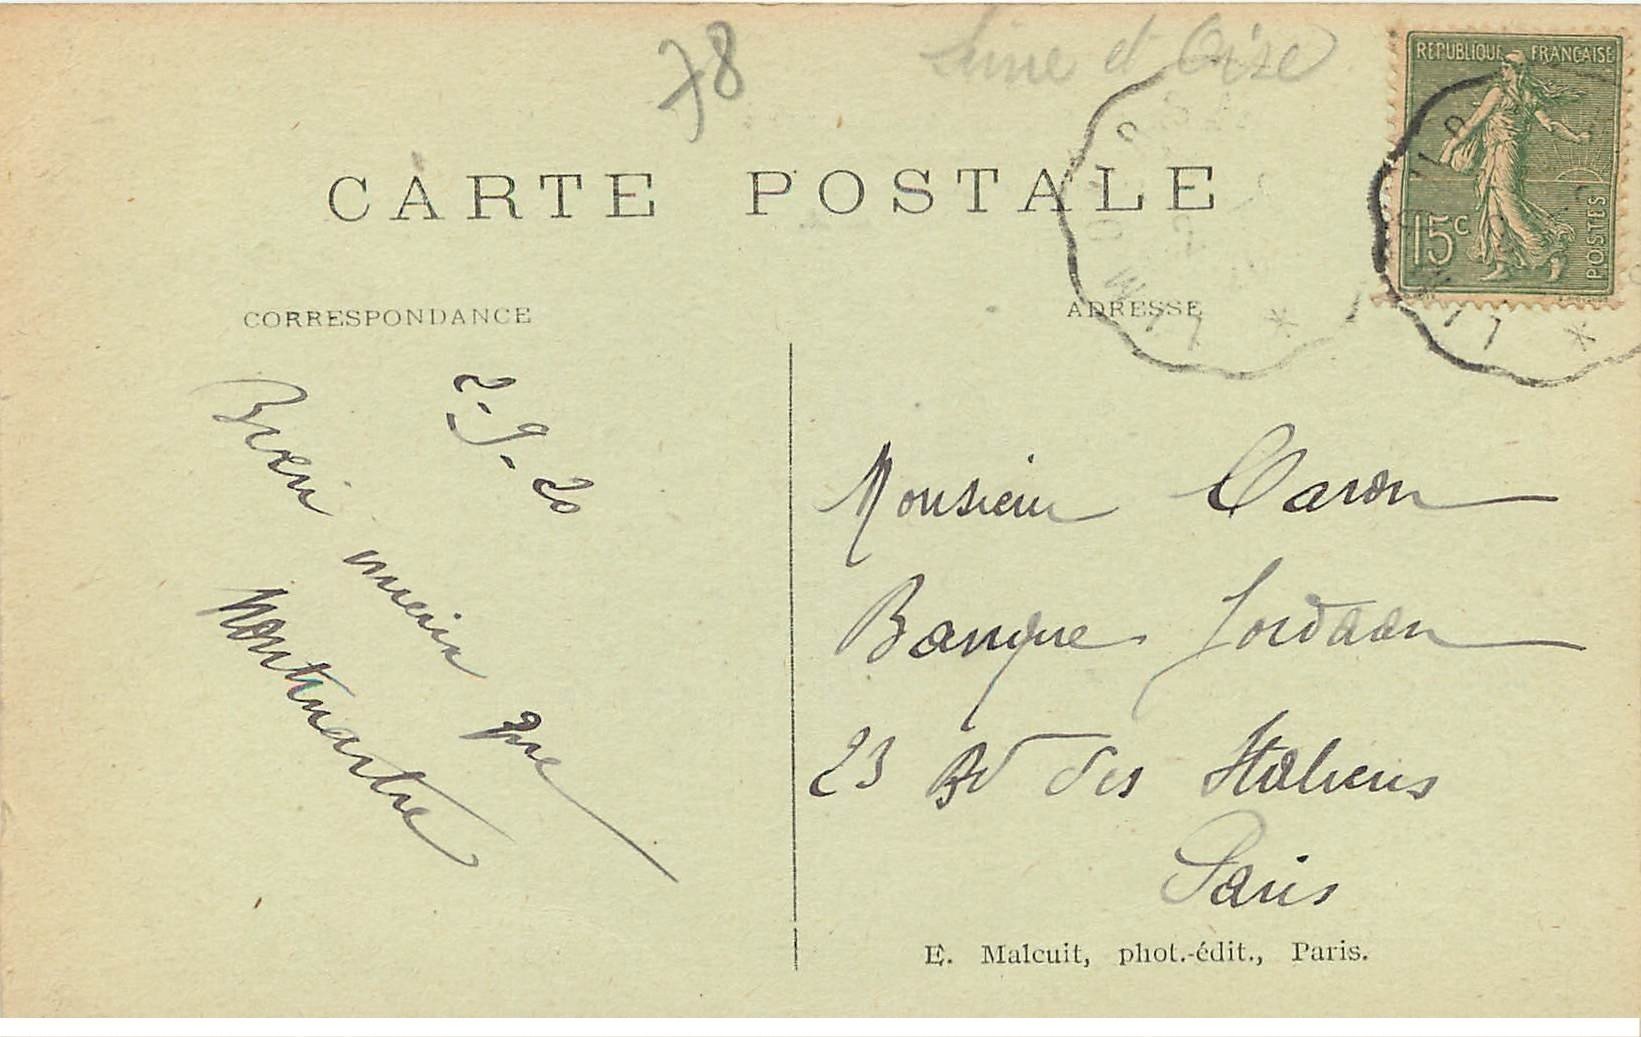 78
Seine et Oise
REPUBLIQUE FRANÇAISE
15c
POSTES
CARTE POSTALE
CORRESPONDANCE
ADRESSE
2-9-20
Bien mieux que
Montmartre
Monsieur Caron
Banque Jordaan
23 Bd des Italiens
Paris
E. Malcuit, phot.-édit., Paris.